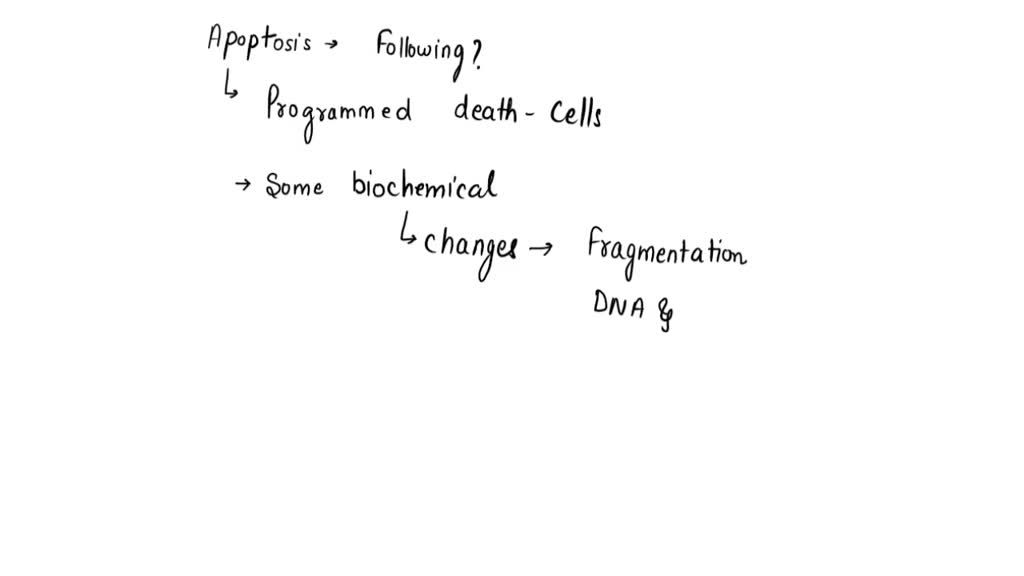 Apoptosis → Following?
↳ Programmed death - cells
→ Some biochemical
↳ changes → Fragmentation
DNA &